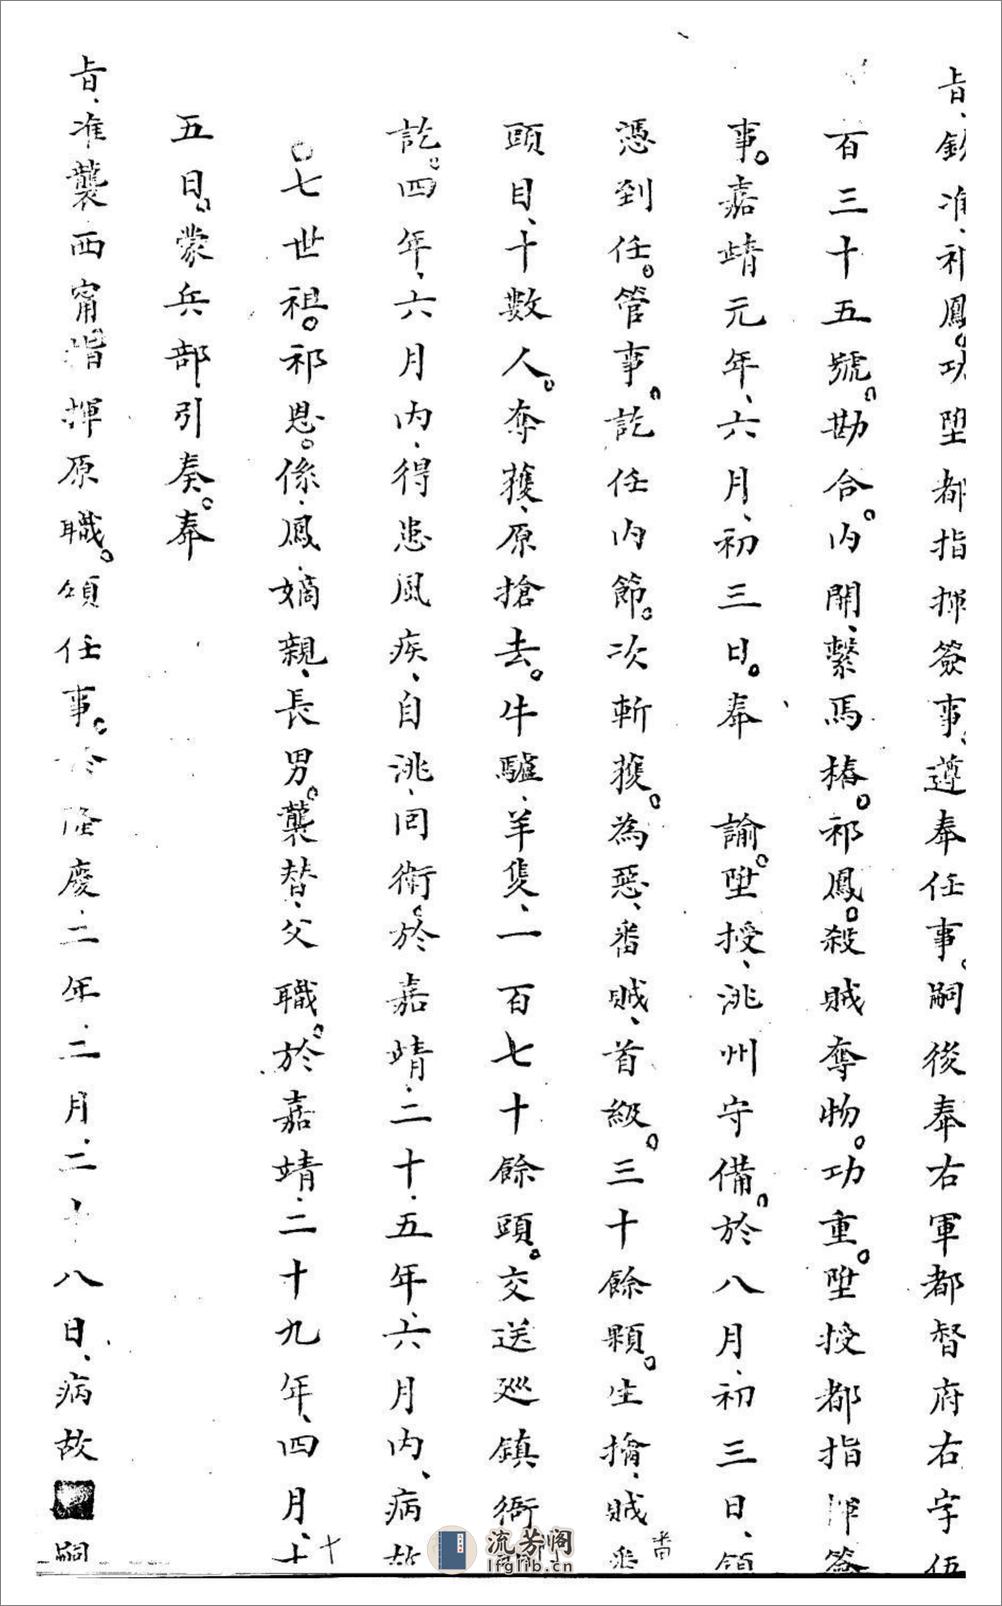 旨、欽准、祁鳳。功陞都指揮簽事、遵奉任事。嗣後奉右軍都督府右字伍
百三十五號。勘合。內開、繫馬樁。祁鳳。殺賊奪物。功重。陞授都指揮簽
事。嘉靖元年、六月、初三日。奉 諭。陞授、洮州守備。於八月、初三日、領
憑到任。管事。訖任內節。次斬獲。為惡、番賊、首級。三十餘顆。生擒、賊番
頭目、十數人。奪獲、原搶去。牛驢、羊隻、一百七十餘頭。交送巡鎮衙
訖。四年、六月內、得患風疾、自洮、回衛、於嘉靖、二十、五年、六月內、病故
○七世祖。祁恩。係、鳳、嫡親、長男。襲替、父職。於嘉靖、二十九年、四月、十
五日。蒙兵部、引奏。奉
旨、准襲西甯指揮原職。領任事。於隆慶、二年、二月、二十八日、病故 嗣
番
十
流芳阁
lfglib.cn